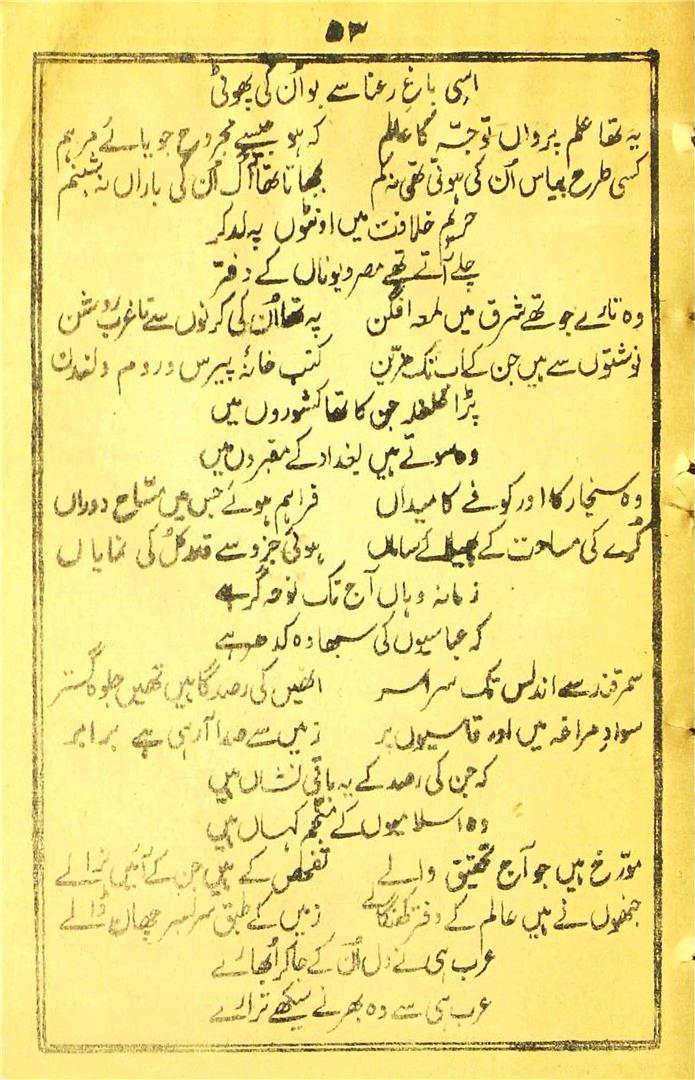 ۵۳
اسی باغِ رعنا سے بو اُن کی پھوٹی
یہ تھا علم پر واں توجّہ کا عالم کہ ہو جیسے مجروح جویائے مرہم
کسی طرح پیاس اُن کی ہوتی تھی نہ کم بجھاتا تھا آگ اُن کی باراں نہ شبنم
حریمِ خلافت میں اونٹوں پہ لد کر
چلے آتے تھے مصر و یوناں کے دفتر
وہ تارے جو تھے شرق میں لمعہ افگن پہ تھا اُن کی کرنوں سے تا غرب روشن
نوشتوں سے ہیں جن کے اب تک مزیّن کتب خانۂ پیرس و روم و لندن
پڑا غلغلہ جن کا تھا کشوروں میں
وہ سوتے ہیں بغداد کے مقبروں میں
وہ سنجار کا اور کوفے کا میداں فراہم ہوئے جس میں مسّاحِ دوراں
کُرے کی مساحت کے پھیلائے ساماں ہوئی جزو سے قدر کُل کی نمایاں
زمانہ وہاں آج تک نوحہ گر ہے
کہ عباسیوں کی سبھا وہ کدھر ہے
سمرقند سے اندلس تک سراسر انھیں کی رصد گاہیں تھیں جلوہ گستر
سوادِ مراغہ میں اور قاسیوں پر زمیں سے صدا آ رہی ہے برابر
کہ جن کی رصد کے یہ باقی نشاں ہیں
وہ اسلامیوں کے منجّم کہاں ہیں
مورّخ ہیں جو آج تحقیق والے تفحّص کے ہیں جن کے آئیں نرالے
جنھوں نے ہیں عالم کے دفتر کھنگالے زمیں کے طبق سر بسر چھان ڈالے
عرب ہی نے دل اُن کے جا کر اُبھارے
عرب ہی سے وہ بھرنے سیکھے ترارے